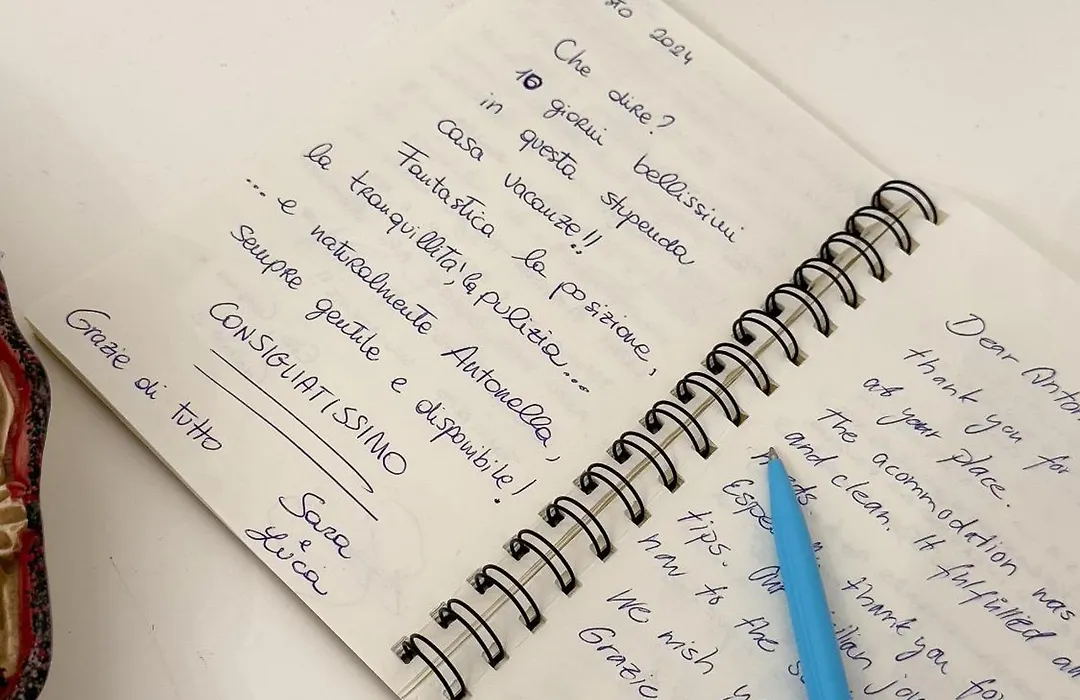 2024
Che dire?
10 giorni bellissimi
in questa stupenda
casa vacanze!!
Fantastica la posizione,
la tranquillità, la pulizia...
... e naturalmente Antonella,
sempre gentile e disponibile!
CONSIGLIATISSIMO
Grazie di tutto
Sara
e
Luca
Dear
thank you for
at your place.
The acommodation was
and clean. It fulfilled
thank you for
tips.
now to the
We wish
Grazie